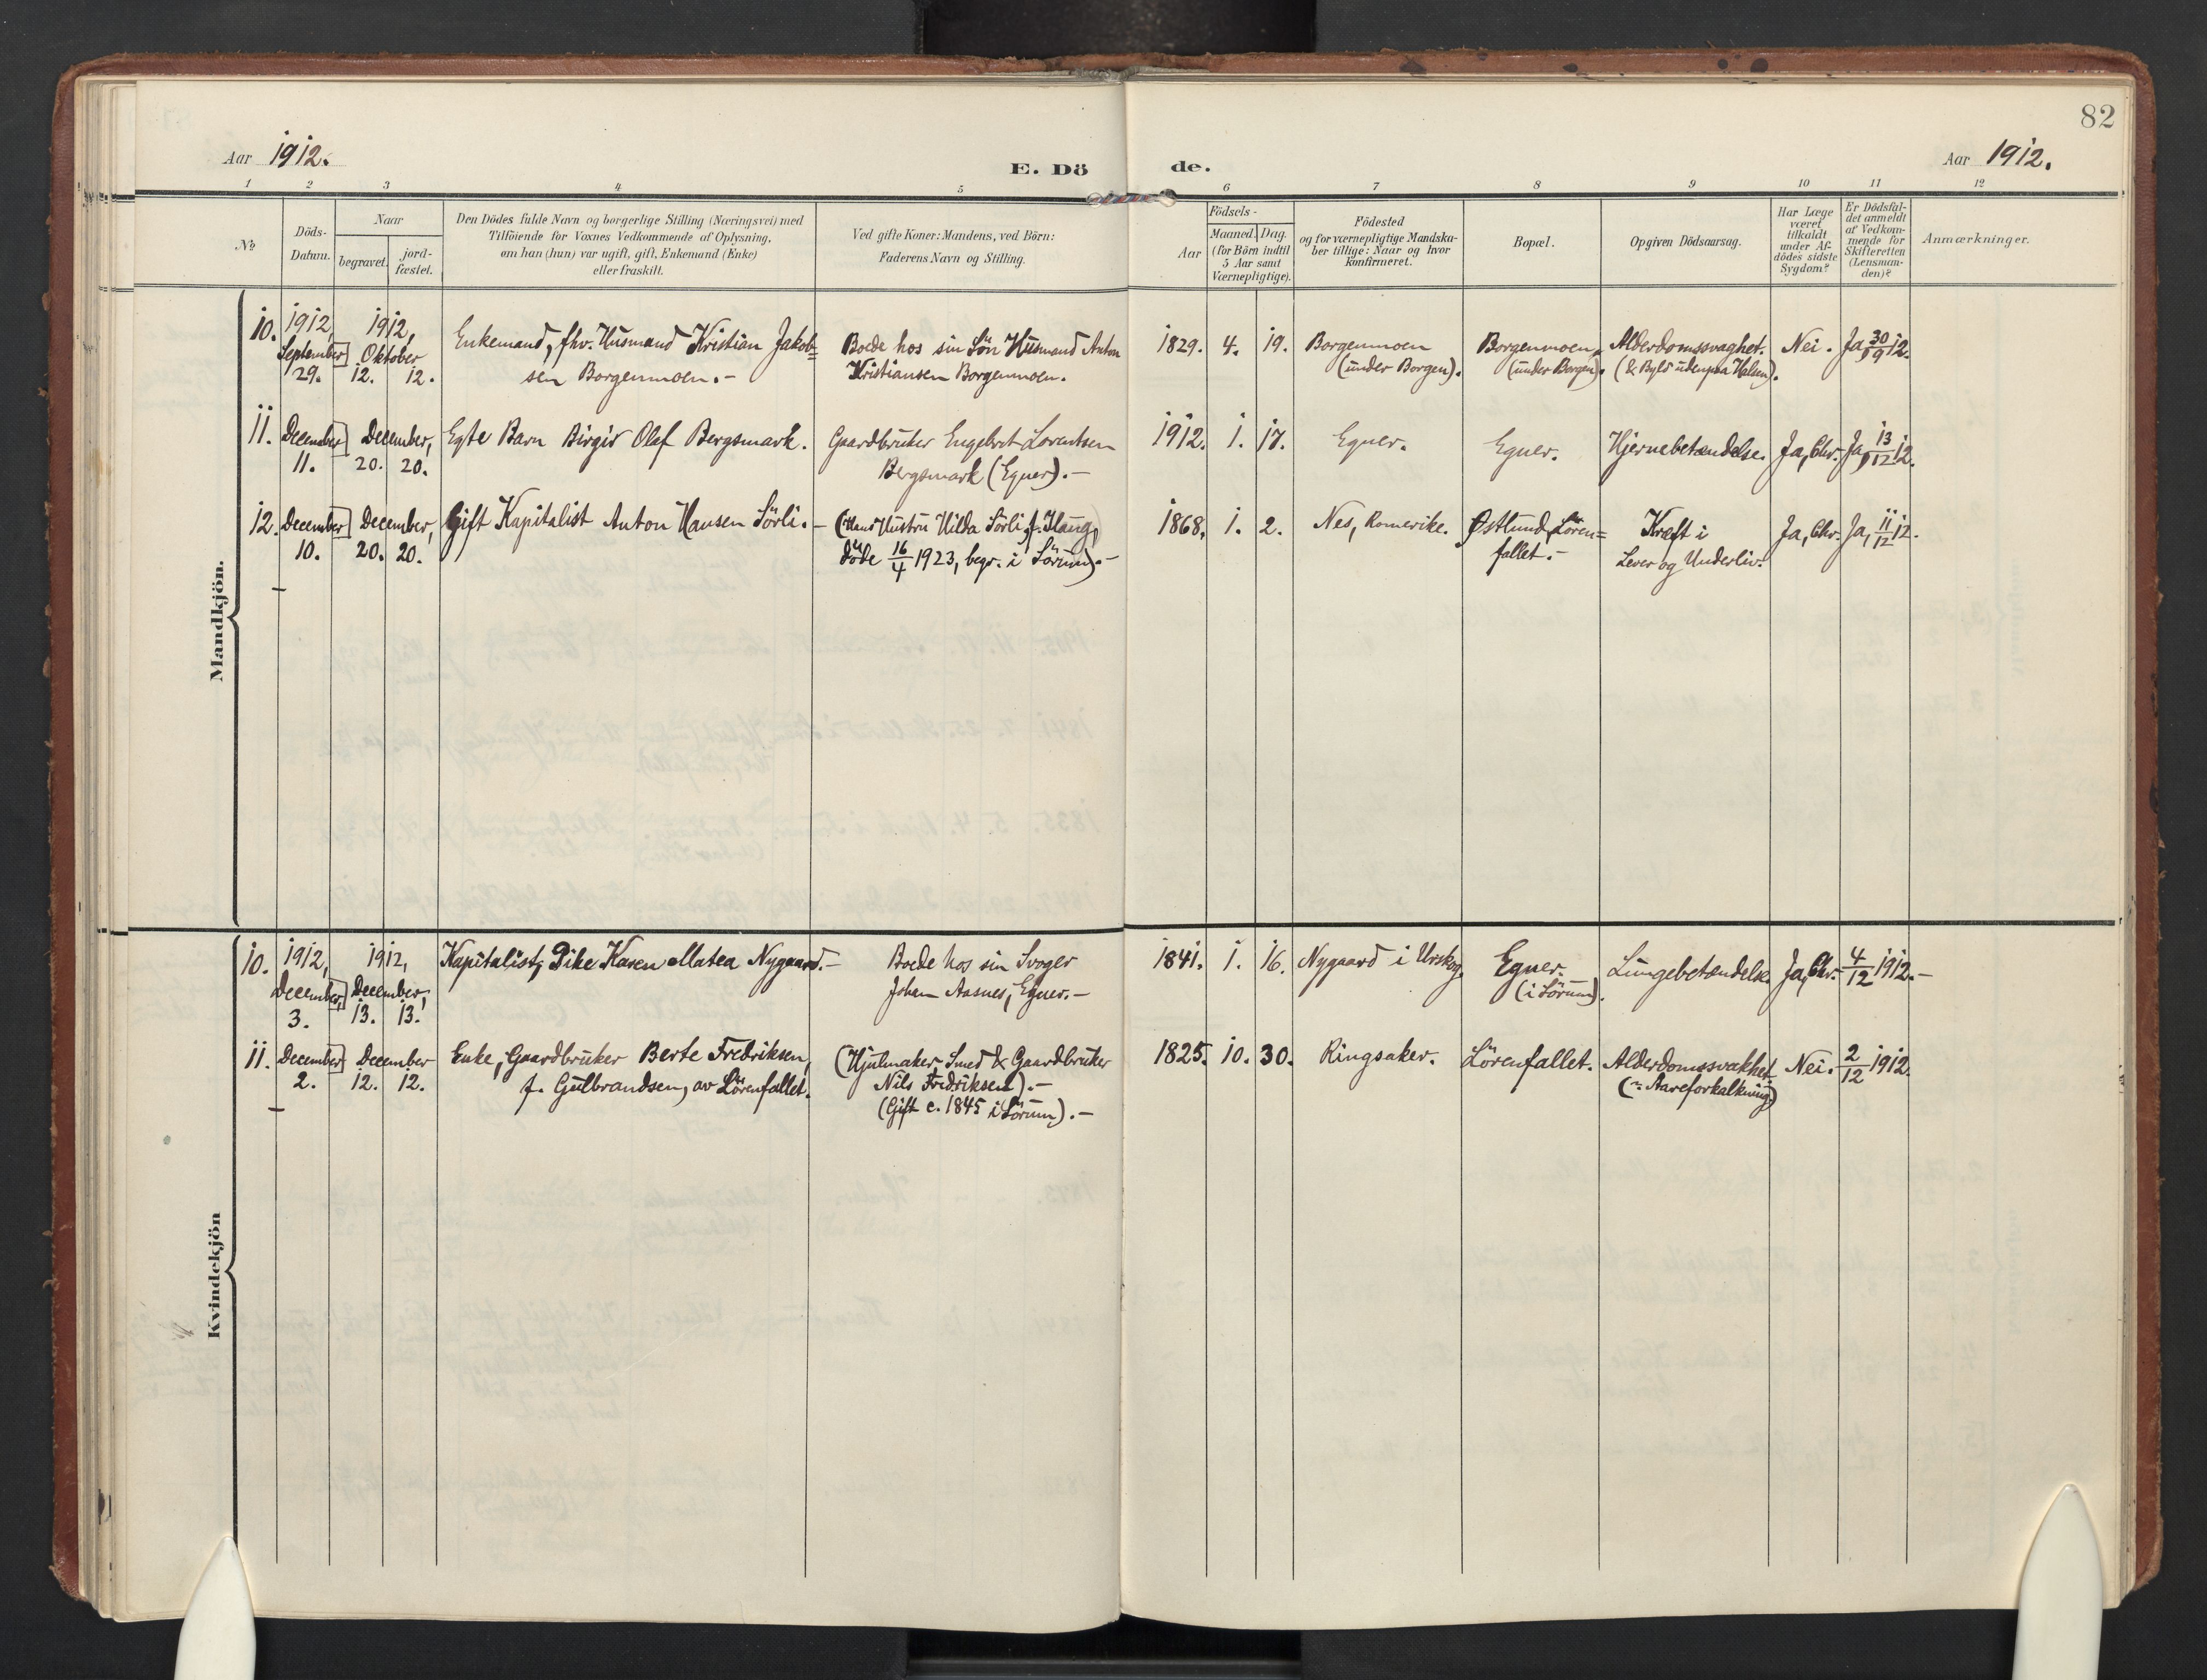 82
Aar 1912.
E. Dö
de.
Aar 1912.
1 2 3 4 5 6 7 8 9 10 11 12
№
Döds-
Datum.
Naar
begravet.
jord-
fæstet.
Den Dödes fulde Navn og borgerlige Stilling (Næringsvei) med
Tilföiende for Voxnes Vedkommende af Oplysning,
om han (hun) var ugift, gift, Enkemand (Enke)
eller fraskilt.
Ved gifte Koner: Mandens, ved Börn:
Faderens Navn og Stilling.
Födsels-
Aar
Maaned. Dag.
(for Börn indtil
5 Aar samt
Værnepligtige).
Födested
og for værnepligtige Mandska-
ber tillige: Naar og hvor
konfirmeret.
Bopæl.
Opgiven Dödsaarsag.
Har Læge
været
tilkaldt
under Af-
dödes sidste
Sygdom?
Er Dödsfal-
det anmeldt
af Vedkom-
mende for
Skifteretten
(Lensman-
den)?
Anmærkninger.
Mandkjön.
10.
1912,
September
29.
1912,
Oktober
12. 12.
Enkemand, fhv. Husmand Kristian Jakob=
sen Borgenmoen.-
Boede hos sin Sön Husmand Anton
Kristiansen Borgenmoen.
1829. 4. 19.
Borgenmoen
(under Borgen).
Borgenmoen
(under Borgen).
Alderdomssvaghet.
(& Byld udenpaa Halsen).
Nei.
Ja, 30/9 12.
11.
December
11.
December,
20. 20.
Egte Barn Birgir Olef Bergsmark.
Gaardbruker Engebret Lorentsen
Bergsmark (Egner).-
1912. 1. 17.
Egner.
Egner.
Hjernebetændelse.
Ja, Chr.
Ja, 13/12 12.
12.
December
10.
December,
20. 20.
Gift Kapitalist Anton Hansen Sörli.-
(Hans Hustru Hilda Sörli f. Haug,
döde 16/4 1923, begr. i Sörum).-
1868. 1. 2.
Nes, Romerike.
Østlund, Lören=
fallet.-
Kræft i
Lever og Underliv.
Ja, Chr.
Ja, 11/12 12.
Kvindekjön
10.
1912,
December
3.
1912,
December,
13. 13.
Kapitalist, Pike Karen Matea Nygaard.-
Boede hos sin Svoger
Johan Aasnes, Egner.-
1841. 1. 16.
Nygaard i Urskog.
Egner.
(i Sörum).
Lungebetændelse.
Ja, Chr.
4/12 1912.-
11.
December
2.
December
12. 12.
Enke, Gaardbruker Berte Fredriksen,
f. Gulbrandsen, av Lörenfallet.
(Hjulmaker, Smed & Gaardbruker
Nils Fredriksen).-
(Gift c. 1845 i Sörum).-
1825. 10. 30.
Ringsaker.
Lörenfallet.
Alderdomssvakhet
(~ Aareforkalkning)
Nei.
2/12 1912.